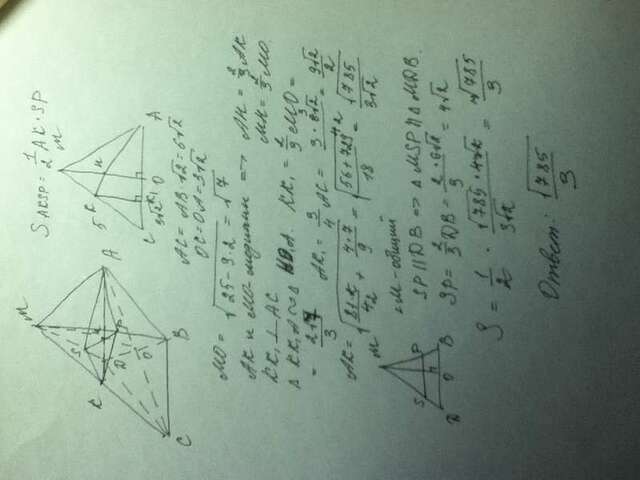 M
S AKSP = 1/2 AK · SP
K S A D P O C B
M K 5 H C 3√2 K₁ O A
AC = AB·√2 = 6√2
OC = OA = 3√2
MO = √(25 - 9·2) = √7
AK и MO - медианы => AH = 2/3 AK
MH = 2/3 MO.
KK₁ ⊥ AC
KK₁ = 2/3 MO =
= 2√7/3 AK₁ = 3/4 AC = 3·6√2/4 = 9√2/2
AK = √(81·2/4 + 4·7/9) = √((56+729)/18) = √785/3√2
M S P D O B
∠M - общий
SP || DB => △ MSP || △ MDB.
SP = 2/3 DB = 2·6√2/3 = 4√2
S = 1/2 · √785·4√2/3√2 = √785/3
Ответ: √785/3